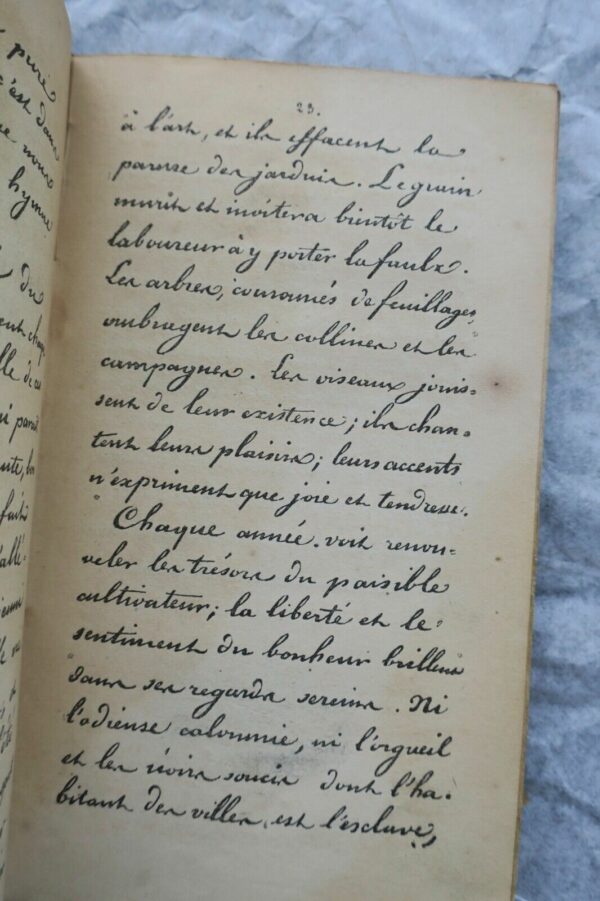 pure
c'est dans
que nous
hymne
du
ent chaque
lle de ces
ui parait
fait
23.
à l'art, et ils effacent la
parure des jardins. Le grain
murit et invitera bientôt le
laboureur à y porter la faulx.
Les arbres, couronnés de feuillages,
ombragent les collines et les
campagnes. Les oiseaux jouis-
sent de leur existence; ils chan-
tent leurs plaisirs; leurs accents
n'expriment que joie et tendresse.
Chaque année voit renou-
veler les trésors du paisible
cultivateur; la liberté et le
sentiment du bonheur brillent
dans ses regards sereins. Ni
l'odieuse calomnie, ni l'orgueil
et les noirs soucis dont l'ha-
bitant des villes est l'esclave,